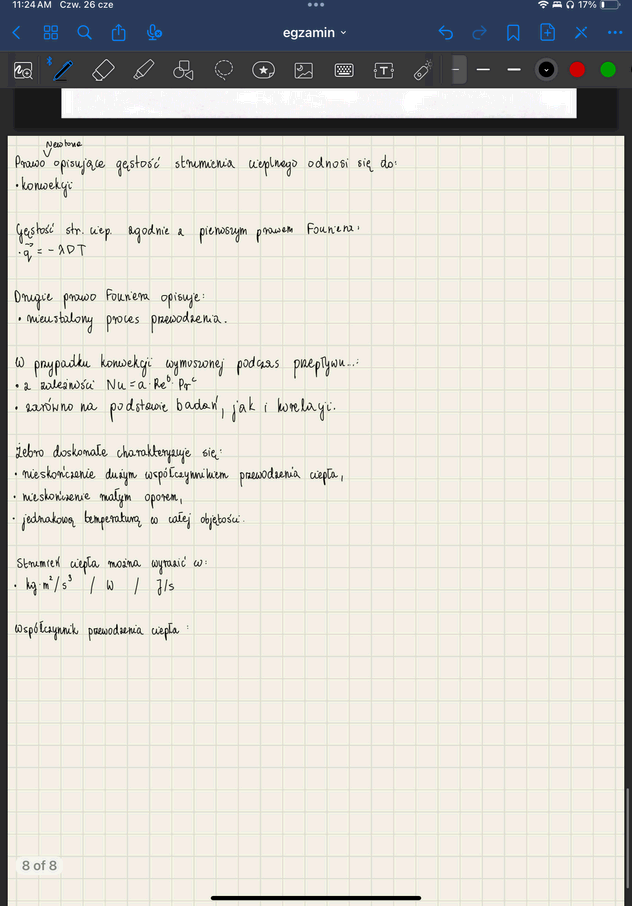 11:24 AM Czw. 26 cze
17%
egzamin
Newtona
Prawo opisujące gęstość strumienia cieplnego odnosi się do:
• konwekcji
Gęstość str. ciep. zgodnie z pierwszym prawem Fouriera:
• q⃗ = - λ∇T
Drugie prawo Fouriera opisuje:
• nieustalony proces przewodzenia.
W przypadku konwekcji wymuszonej podczas przepływu...:
• z zależności Nu = a · Re^b · Pr^c
• zarówno na podstawie badań, jak i korelacji.
Żebro doskonałe charakteryzuje się:
• nieskończenie dużym współczynnikiem przewodzenia ciepła,
• nieskończenie małym oporem,
• jednakową temperaturą w całej objętości.
Strumień ciepła można wyrazić w:
• kg·m²/s³ / W / J/s
Współczynnik przewodzenia ciepła:
8 of 8